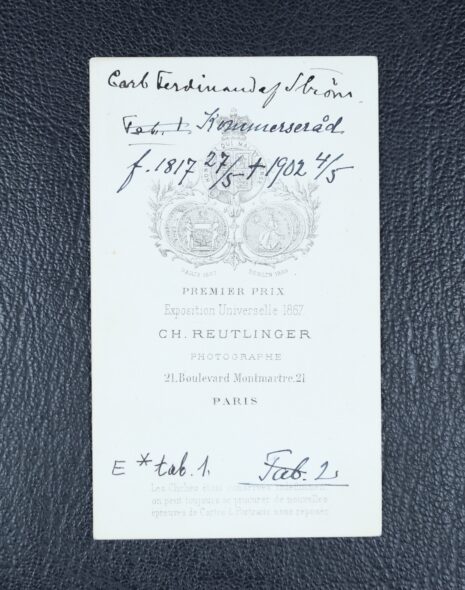 Carl Ferdinand af Ström
Tab. 1 Kommerseråd
f. 1817 27/5 † 1902 4/5
HONI SOIT QUI MAL
PARIS 1867 BERLIN 1865
PREMIER PRIX
Exposition Universelle 1867
CH. REUTLINGER
PHOTOGRAPHE
21, Boulevard Montmartre, 21
PARIS
E * tab. 1. Tab. 2
Les Clichés étant conservés
on peut toujours se procurer de nouvelles
épreuves de Cartes & Portraits sans reposer